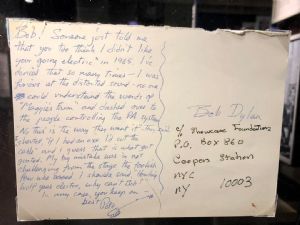 Bob! Someone just told me
that you too think I didn't like
your "going electric" in 1965. I've
denied that so many times. I was
furious at the distorted sound - no one
could understand the words of
"Maggie's Farm" and dashed over to
the people controlling the PA system
No this is the way they want it
shouted "If I had an axe I'd cut the
cable" and I guess that is what got
quoted. My big mistake was in not
challenging from the stage the foolish
few who booed. I should said, "Howling
Wolf goes electric, why can't Bob?"
In any case, you keep on -
best Pete
Bob Dylan
c/o Showcase Foundation
P.O. Box 860
Cooper Station
NYC
NY 10003